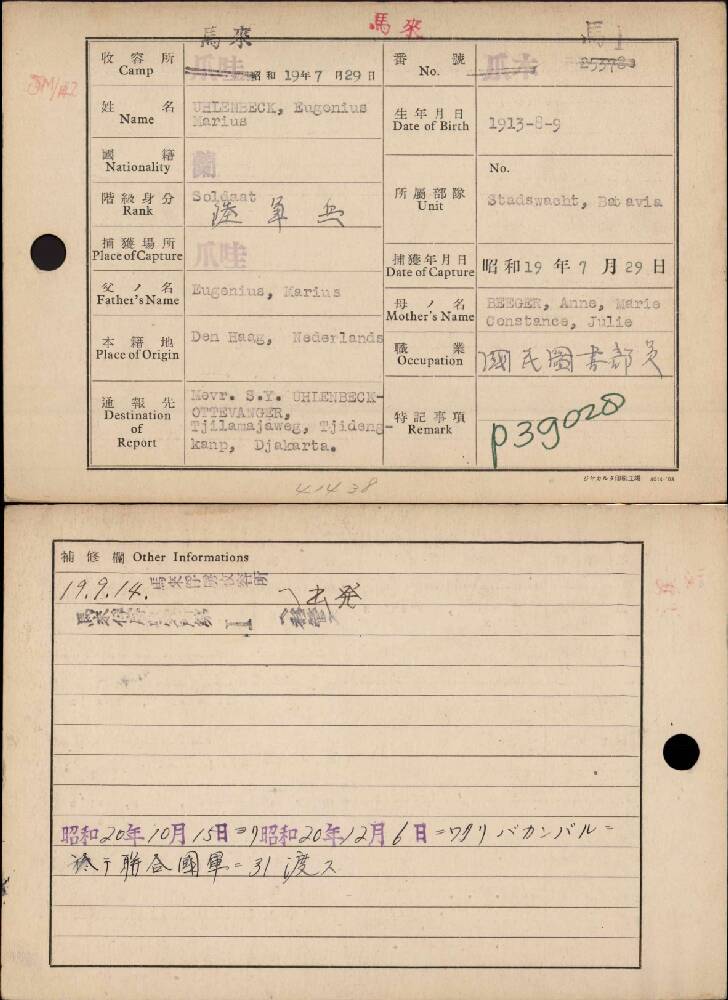 馬來 馬來 馬 1
收容所 Camp 爪哇 昭和19年7月29日 番號 No. 爪 25398
姓名 Name UHLENBECK, Eugonius Marius 生年月日 Date of Birth 1913-8-9
國籍 Nationality 蘭 No.
階級身分 Rank Soldaat 陸軍兵 所屬部隊 Unit Stadswacht, Batavia
捕獲場所 Place of Capture 爪哇 捕獲年月日 Date of Capture 昭和19年7月29日
父ノ名 Father's Name Eugenius, Marius 母ノ名 Mother's Name BEEGER, Anne, Marie Constance, Julie
本籍地 Place of Origin Den Haag, Nederlands 職業 Occupation 國民圖書部員
通報先 Destination of Report Mevr. S.Y. UHLENBECK-OTTEVANGER, Tjilamajaweg, Tjideng-kanp, Djakarta. 特記事項 Remark P39020
41438 ジヤカルタ印刷工場
補修欄 Other Informations
19.9.14. 馬來俘虜收容所ヘ出発
馬來俘虜 I
昭和20年10月15日ニリ昭和20年12月6日ニワタリ パカンバルニ
於テ聯合國軍ニ引渡ス